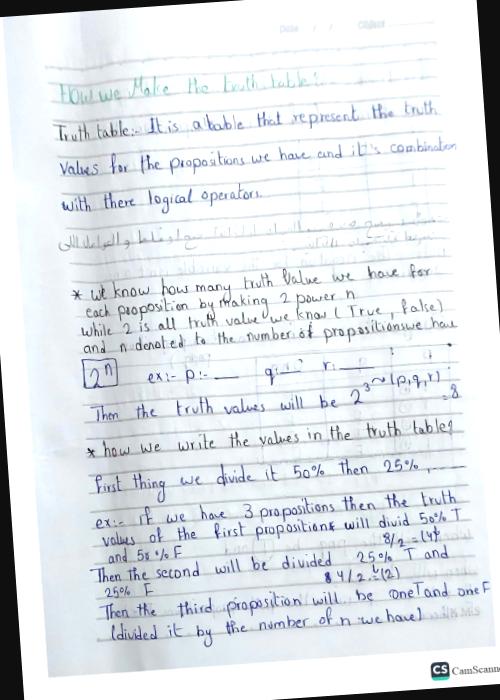 Date / /
How we Make the truth table?
Truth table:- It is a table that represent the truth
Values for the propositions we have and it's combination
with there logical operators.
* we know how many truth Value we have for
each proposition by making 2 power n
while 2 is all truth value we know (True, false)
and n denoted to the number of propositions we have
2^n ex:- p:- __ q:- __ r: __
Then the truth values will be 2^3 ~ (p,q,r) = 8
* how we write the values in the truth table?
first thing we divide it 50% Then 25%, __
ex:- if we have 3 propositions then the truth
values of the first propositions will divid 50% T
and 50% F 8/2 = (4)
Then the second will be divided 25% T and
25% F 4/2 = (2)
Then the third proposition will be one T and one F
(divided it by the number of n we have)
CS CamScanne